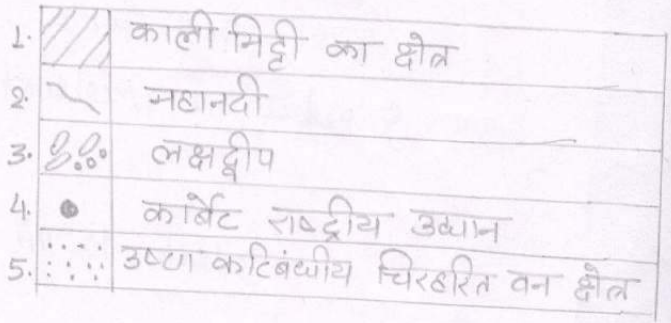 1. काली मिट्टी का क्षेत्र
2. महानदी
3. लक्षद्वीप
4. कार्बेट राष्ट्रीय उद्यान
5. उष्ण कटिबंधीय चिरहरित वन क्षेत्र